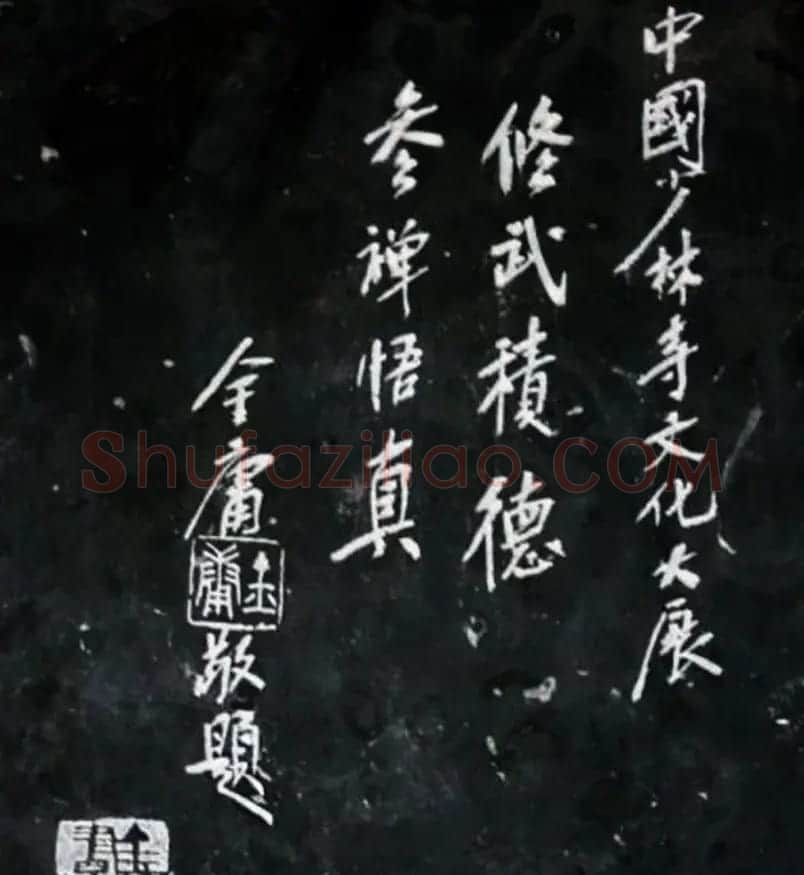 中國少林寺文化大展
修武積德
参禅悟真
金庸敬題
金庸
Shufaziliao.COM